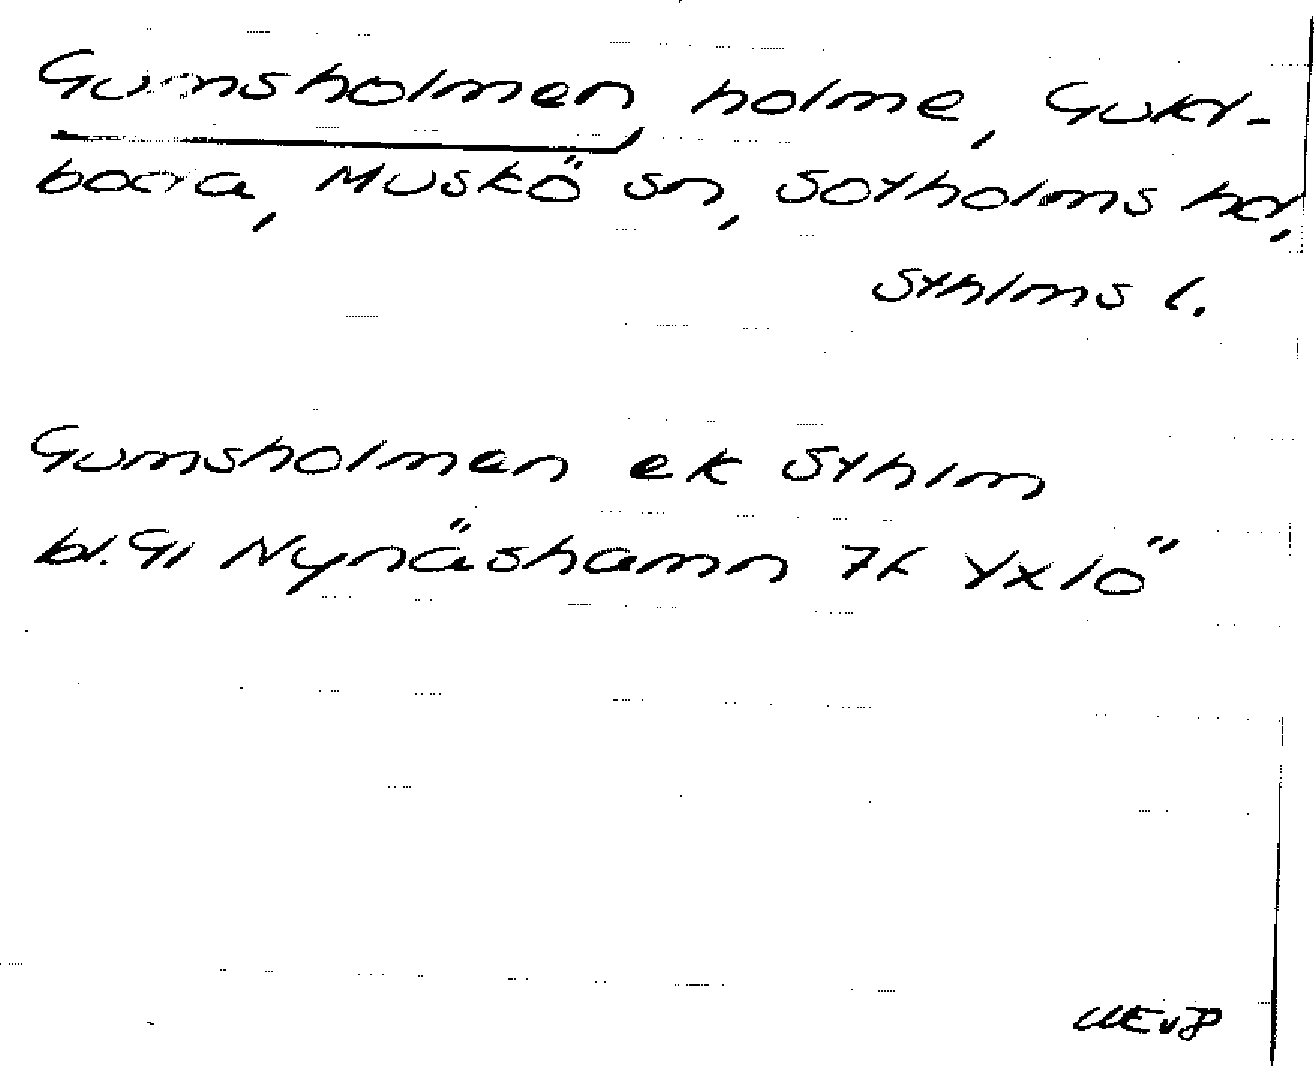 Gumsholmen, holme, Guld-
boda, Muskö sn, Sotholms hd,
Sthlms l.
Gumsholmen ek Sthlm
bl. 91 Nynäshamn 7k Yxlö